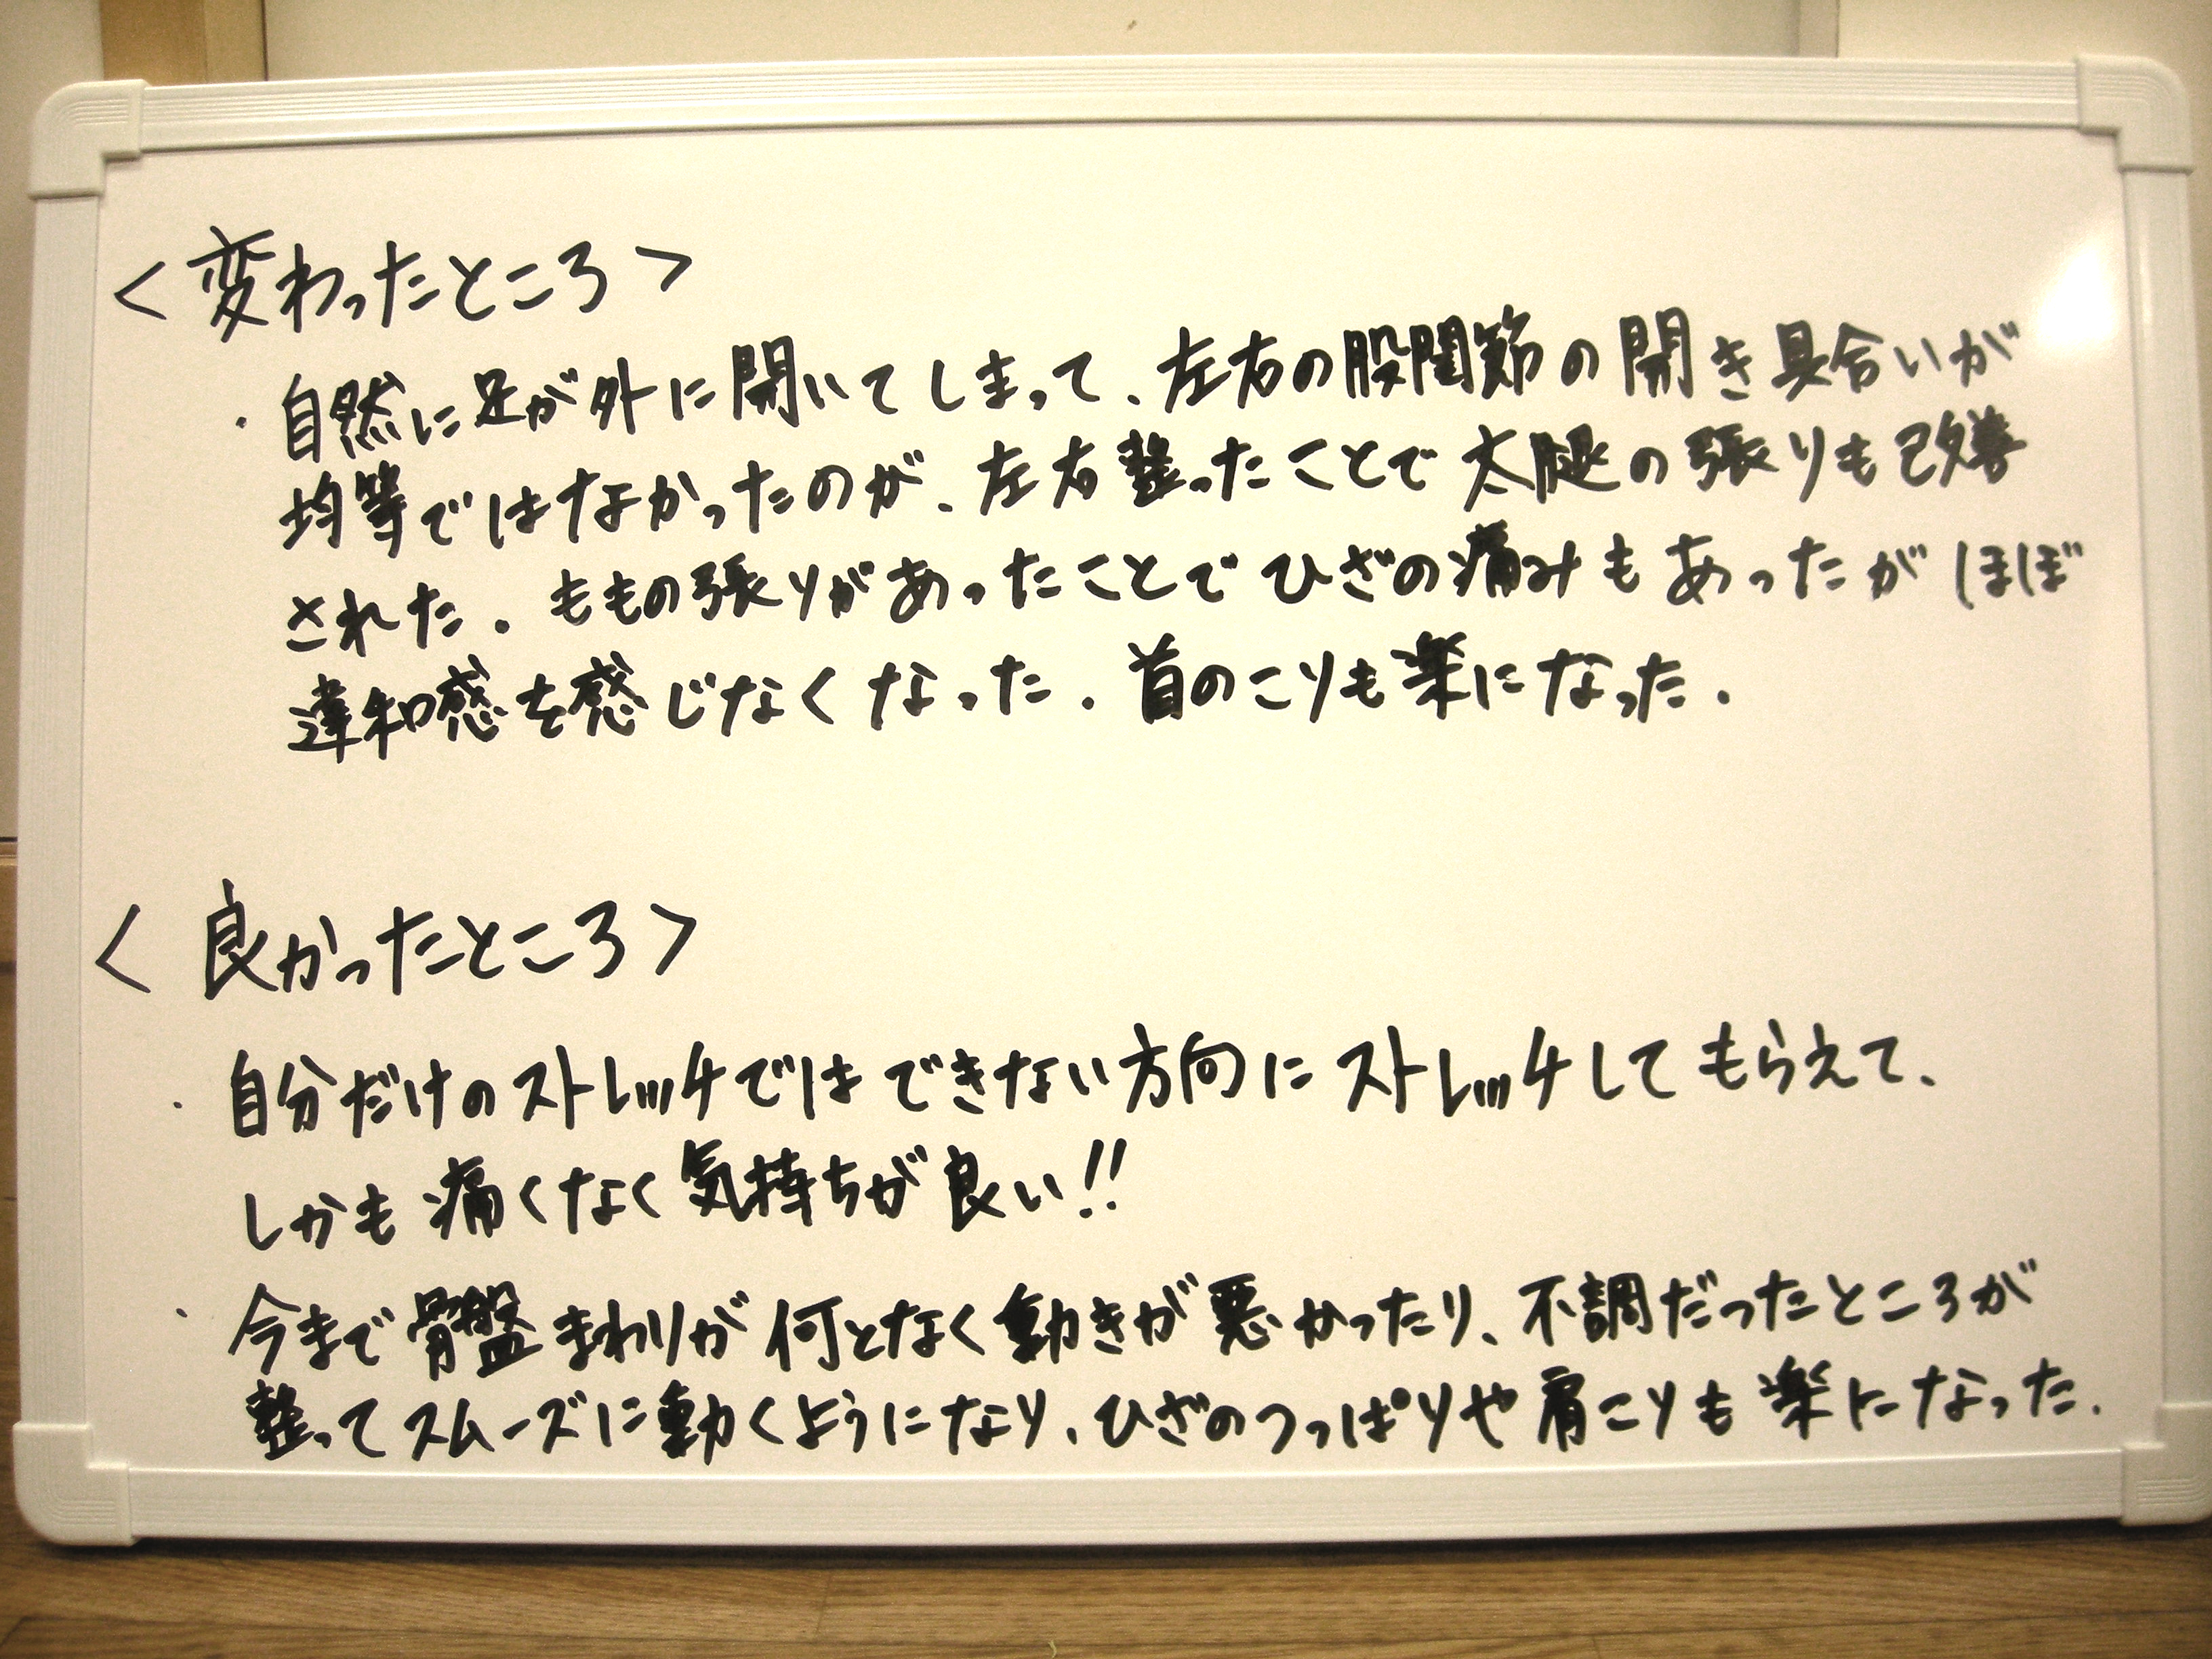 <変わったところ>
・自然に足が外に開いてしまって、左右の股関節の開き具合いが
均等ではなかったのが、左右整ったことで太腿の張りも改善
された。ももの張りがあったことでひざの痛みもあったがほぼ
違和感を感じなくなった。首のこりも楽になった。
<良かったところ>
・自分だけのストレッチではできない方向にストレッチしてもらえて、
しかも痛くなく気持ちが良い!!
・今まで骨盤まわりが何となく動きが悪かったり、不調だったところが
整ってスムーズに動くようになり、ひざのつっぱりや肩こりも楽になった。